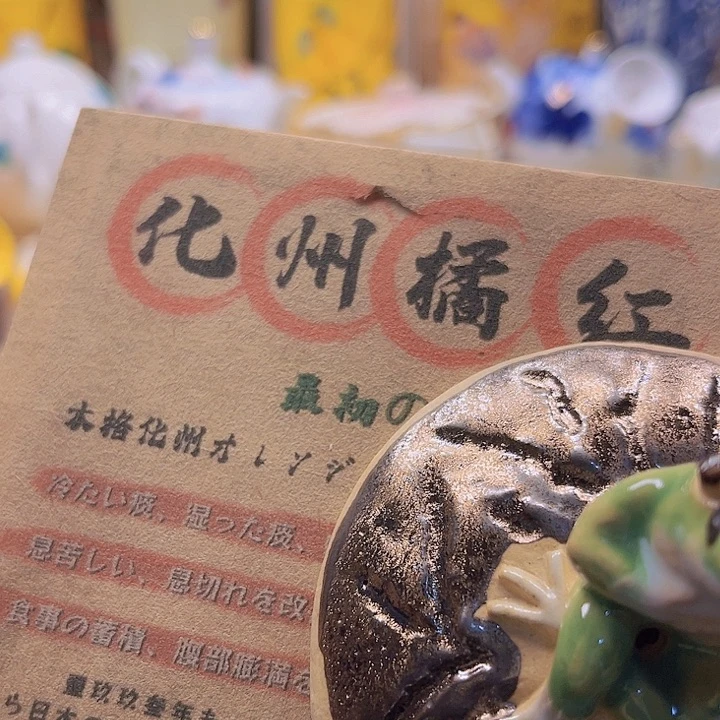 化州橘红
最初の
本格化州オレンジ
冷たい痰、湿った痰、
息苦しい、息切れを改
食事の蓄積、腹部膨満を
壹玖玖叁年も
ら日本の